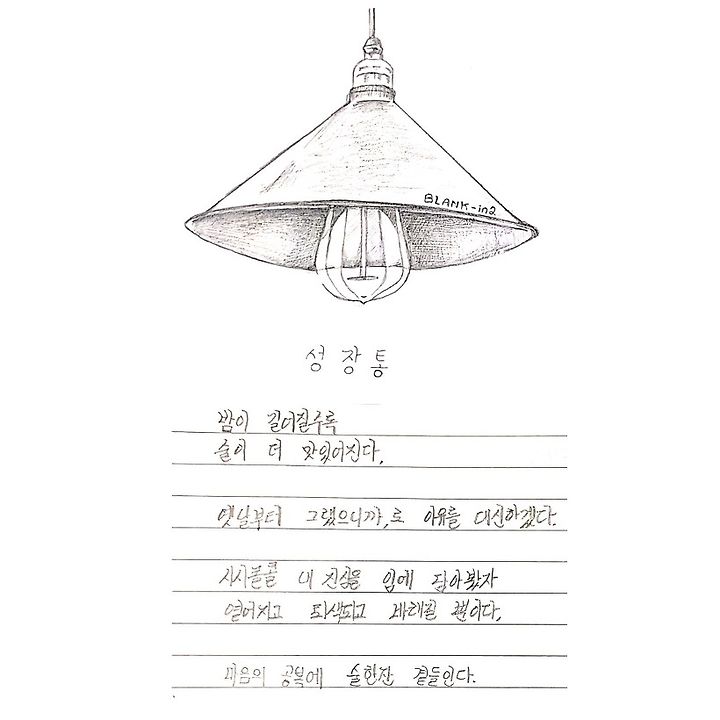 BLANK-in2
성장통
밤이 길어질수록
술이 더 맛있어진다.
옛날부터 그랬으니까,로 이유를 대신하겠다.
시시콜콜 내 진심을 입에 담아봤자
옅어지고 퇴색되고 바래질 뿐이다.
마음의 공복에 술한잔 곁들인다.